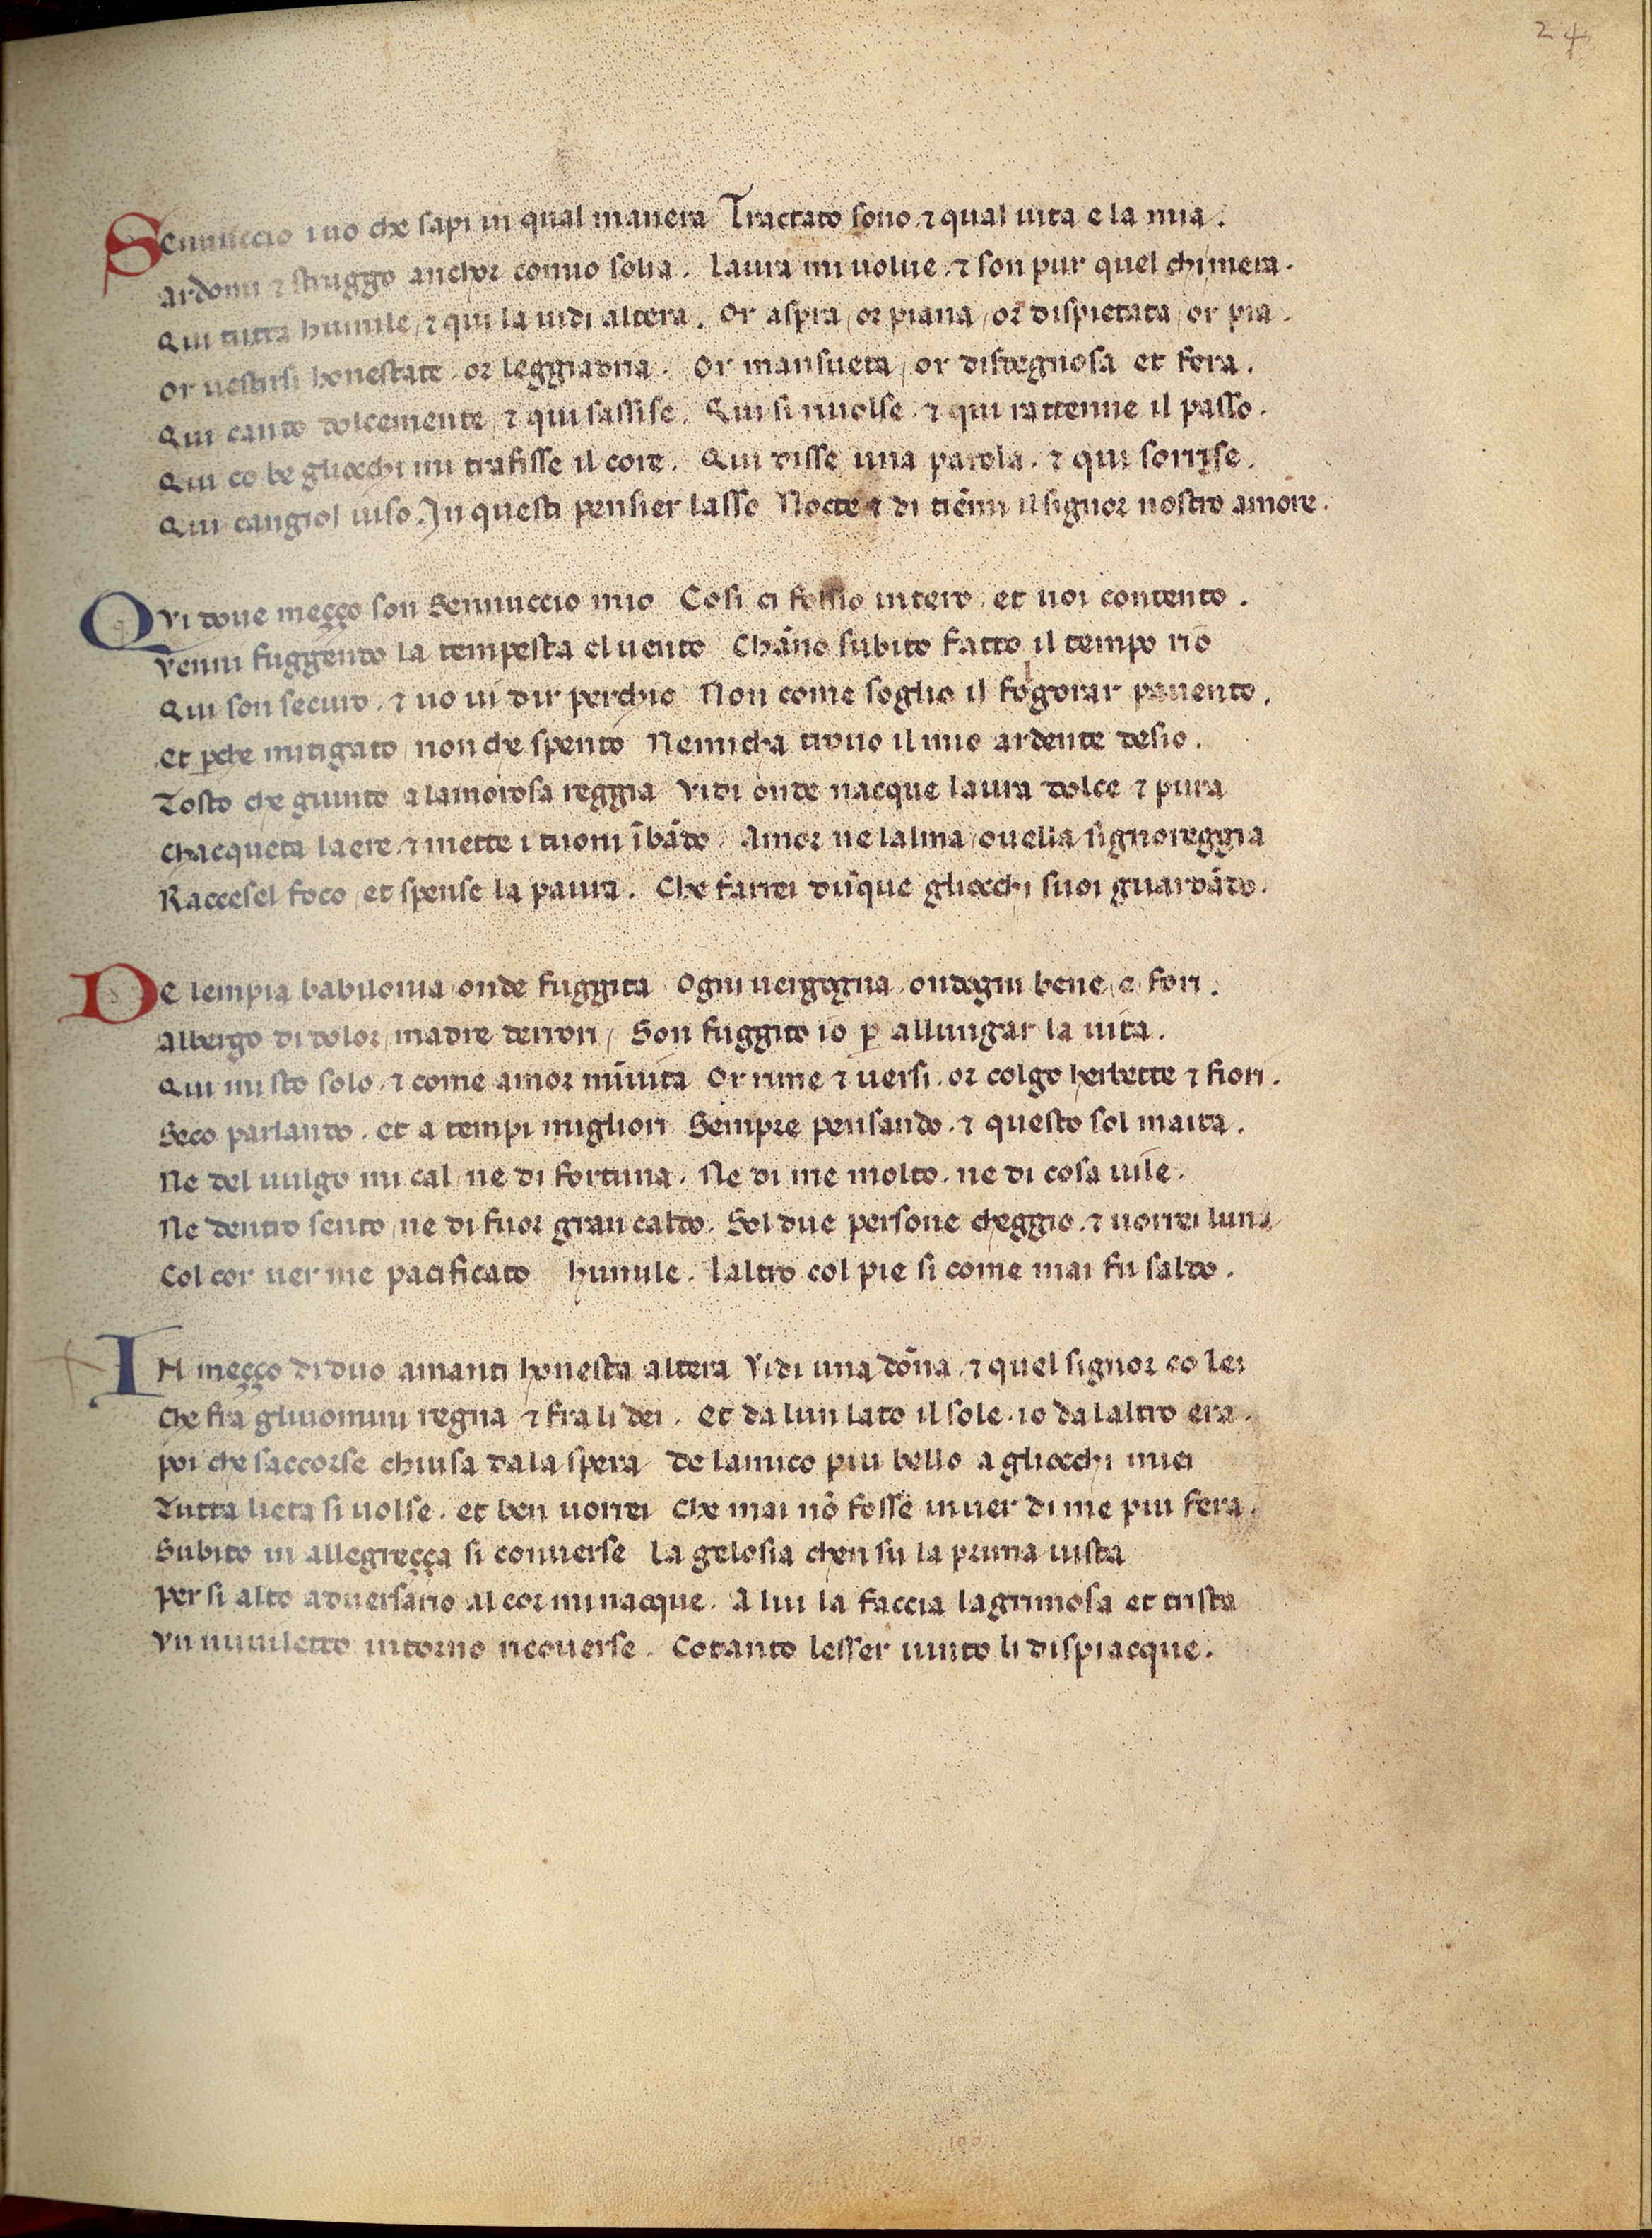 24
Sennuccio i uo che sapi in qual manera Tractato sono ⁊ qual uita e la mia.
Ardomi ⁊ struggo anchor comio solia. Laura mi uolue ⁊ son pur quel chi mera.
Qui tutta humile, ⁊ qui la uidi altera. Or aspra, or piana, or dispietata, or pia.
Or uestirsi honestate or leggiadria. Or mansueta, or disdegnosa et fera.
Qui canto dolcemente, ⁊ qui sassise. Qui si riuolse ⁊ qui rattenne il passo.
Qui co be gliocchi mi trafisse il core. Qui disse una parola. ⁊ qui sorrise.
Qui cangiol uiso. In questi pensier lasso Nocte ⁊ di tiēmi il signor nostro amore.
QVi doue meçço son Sennuccio mio Cosi ci fossio intero. et uoi contento.
Venni fuggendo la tempesta el uento Chāno subito fatto il tempo rio
Qui son securo. ⁊ uo ui dir perchio Non come soglio il folgorar pauento.
Et ꝑche mitigato, non che spento Nemicha trouo il mio ardente desio.
Tosto che giunto a lamorosa reggia Vidi onde nacque laura dolce ⁊ pura
Chacqueta laere. ⁊ mette i tuoni ī bādo. Amor ne lalma, ouella signoreggia
Raccesel foco, et spense la paura. Che farrei dūque gliocchi suoi guardādo.
De lempia babilonia, onde fuggita Ogni uergogna, ondogni bene e fori.
Albergo di dolor, madre derrori, Son fuggito io ꝑ allungar la uita.
Qui mi sto solo. ⁊ come amor mīuita Or rime ⁊ uersi. or colgo herbette ⁊ fiori.
Seco parlando. et a tempi migliori Sempre pensando. ⁊ questo sol maita.
Ne del uulgo mi cal, ne di fortuna. Ne di me molto. ne di cosa uile.
Ne dentro sento, ne di fuor gran caldo. Sol due persone cheggio. ⁊ uorrei luna
Col cor uer me pacificato humile. Laltro col pie si come mai fu saldo.
IN meçço di duo amanti honesta altera Vidi una dōna ⁊ quel signor co lei
Che fra gliuomini regna ⁊ fra li dei. Et da lun lato il sole. io da laltro era.
poi che saccorse chiusa da la spera De lamico piu bello a gliocchi miei
Tutta lieta si uolse. et ben uorrei Che mai nō fosse inuer di me piu fera.
Subito in allegreçça si conuerse La gelosia chen su la prima uista
per si alto aduersario al cor mi nacque. A lui la faccia lagrimosa et trista
Vn nuuiletto intorno ricouerse. Cotanto lesser uinto li dispiacque.